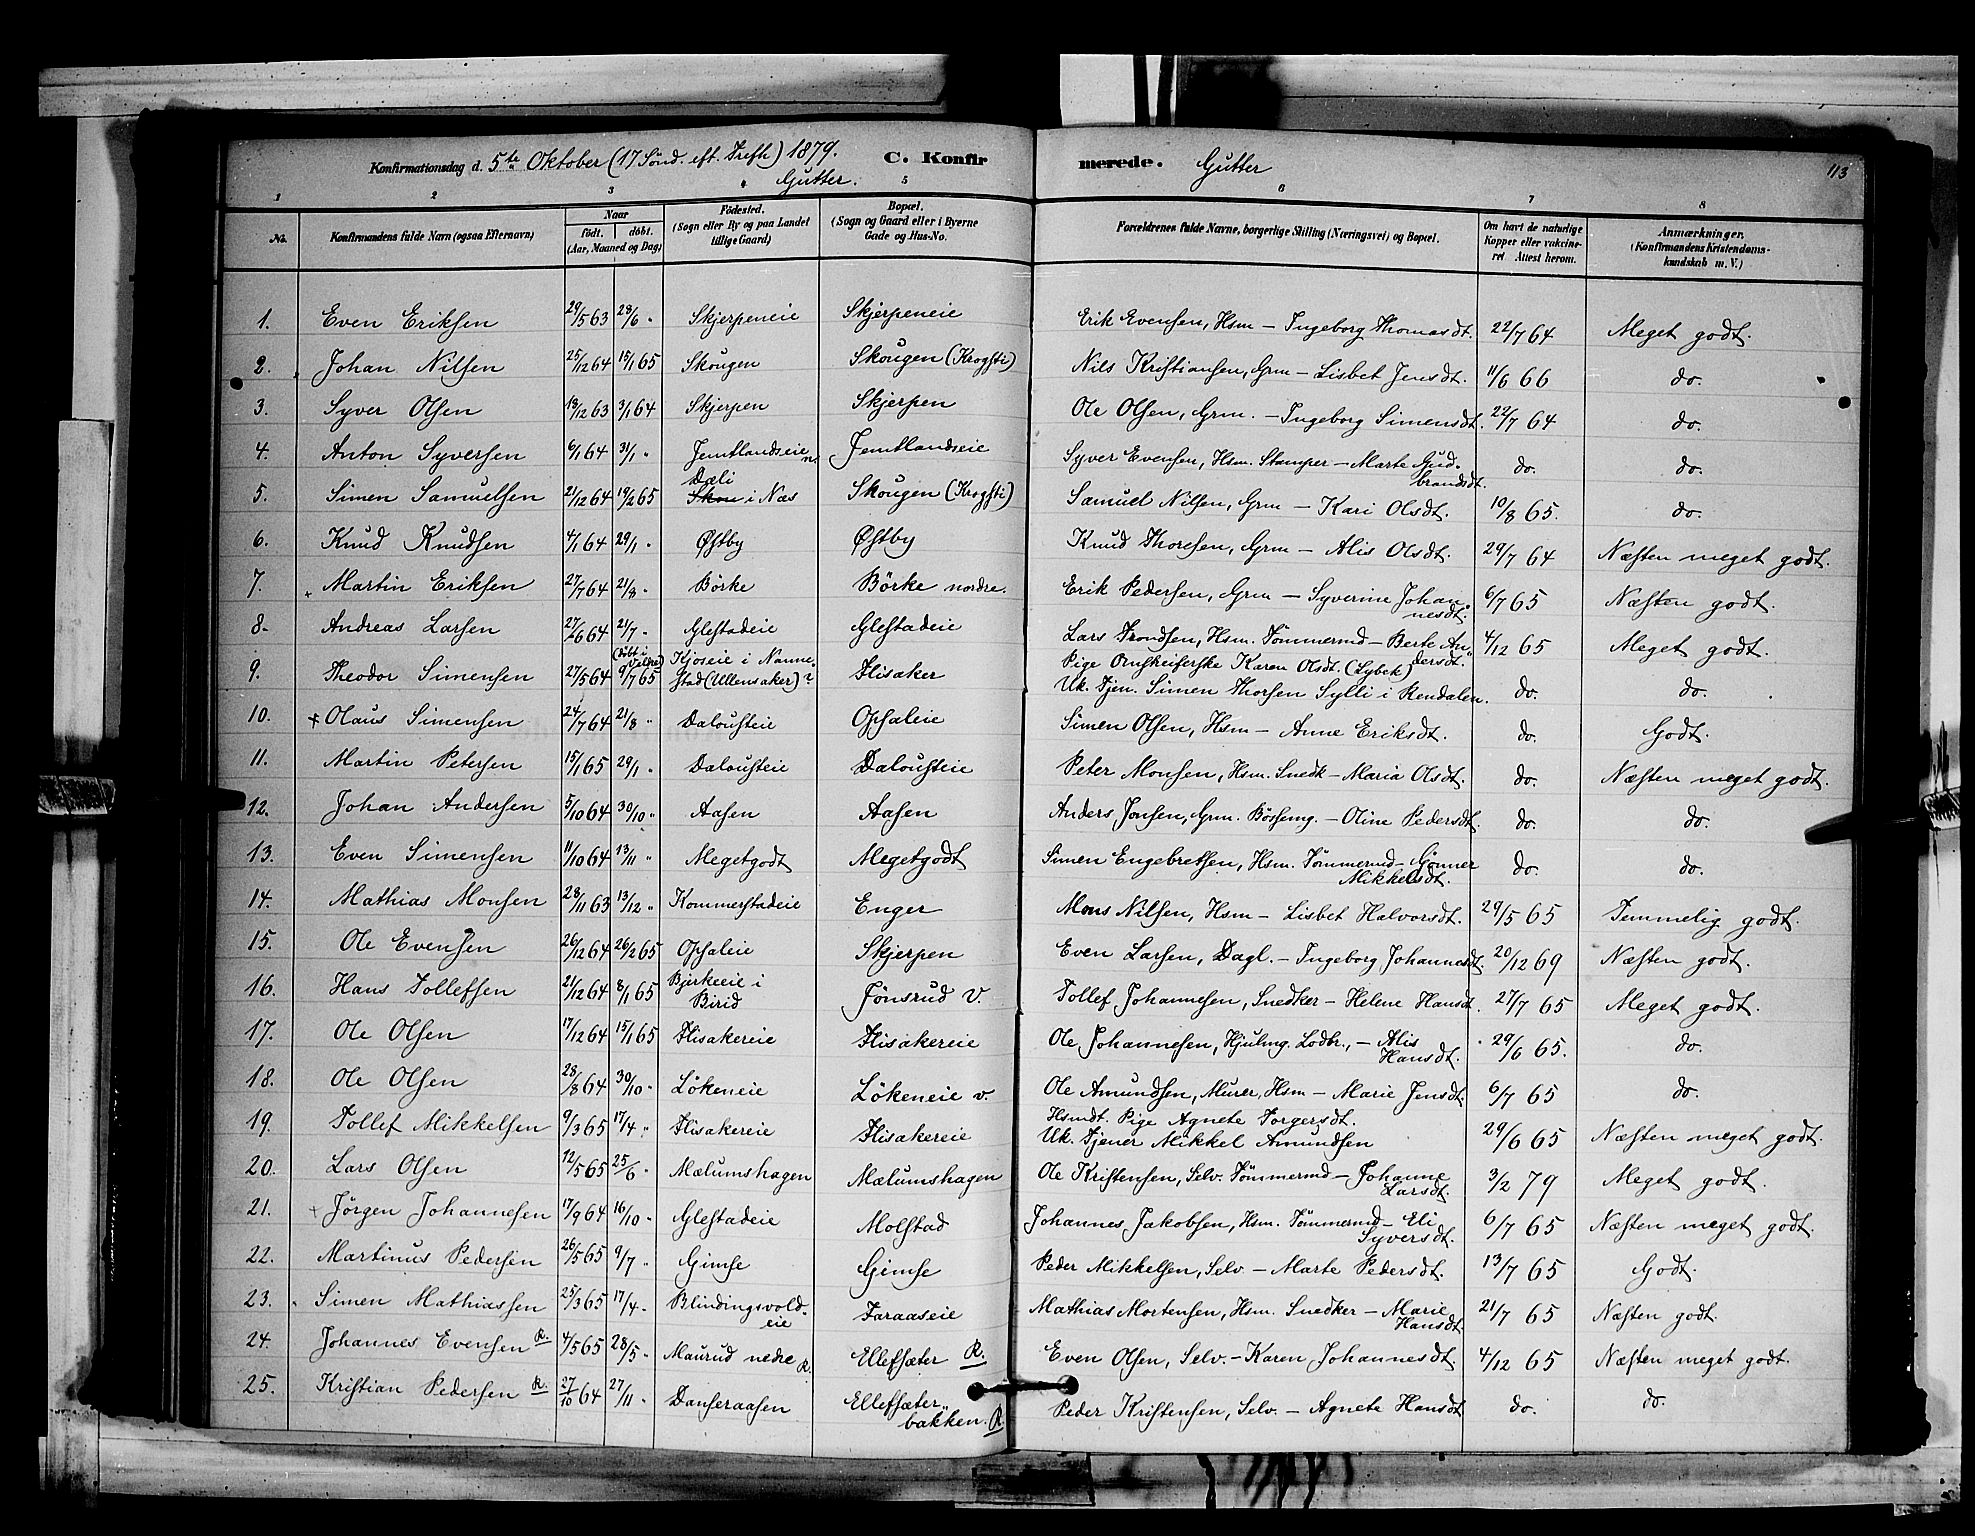 Konfirmationsdag d. 5te Oktober (17 Sönd. eft. Trefh) 1879. C. Konfirmerede. Gutter 113
Gutter.
1 2 3 4 5 6 7 8
No. Konfirmandens fulde Navn (ogsaa Efternavn) Naar født. døbt. (Aar, Maaned og Dag) Fødested. (Sogn eller By og paa Landet tillige Gaard) Bopæl. (Sogn og Gaard eller i Byerne Gade og Hus-No. Forældrenes fulde Navne, borgerlige Stilling (Næringsvei) og Bopæl. Om havt de naturlige Kopper eller vakcineret Attest herom. Anmærkninger. (Konfirmandens Kristendomskundskab m. V.)
1. Even Eriksen 29/5 63 28/6 " Skjerpeneie Skjerpeneie Erik Evensen, Hsm – Ingeborg Thomasdt. 22/7 64 Meget godt.
2. Johan Nilsen 25/12 64 15/1 65 Skougen Skougen (Krogsti) Nils Kristiansen, Grm – Lisbet Jensdt. 11/6 66 do.
3. Syver Olsen 18/12 63 3/1 64 Skjerpen Skjerpen Ole Olsen, Grm. – Ingeborg Simensdt. 22/7 64 do.
4. Anton Syversen 6/1 64 31/1 " Jemtlandseie Jemtlandseie Syver Evensen, Hsm. Stamper – Marte Gudbrandsdt. do. do.
5. Simen Samuelsen 21/12 64 19/2 65 Dæli i Næs Skougen (Krogsti) Samuel Nilsen, Grm – Kari Olsdt. 10/8 65. do.
6. Knud Knudsen 4/1 64 29/1 " Østby Østby Knud Thoresen, Grm – Alis Olsdt. 29/7 64 Næsten meget godt.
7. Martin Eriksen 27/7 64 21/8 " Börke Börke nordre. Erik Pedersen, Grm – Syverine Johannesdt. 6/7 65 Næsten godt.
8. Andreas Larsen 27/6 64 21/7 " Glestadeie Glestadeie Lars Trondsen, Hsm. Tömmermd – Berte Andersdt. 4/12 65 Meget godt.
9. Theodor Simensen 27/5 64 9/7 65 Kjoseie i Nannestad (Ullensaker)? Flisaker Pige Karen Olsdt. (Lybek)
Uk. Tjen. Simen Thorsen Sylli i Rendalen. do. do.
10. Olaus Simensen 24/7 64 21/8 " Dalousteie Opsaleie Simen Olsen, Hsm – Anne Eriksdt. do. Godt.
11. Martin Petersen 15/1 65 29/1 " Dalousteie Dalousteie Peter Monsen, Hsm. Snedk – Maria Olsdt. do. Næsten meget godt.
12. Johan Andersen 5/10 64 30/10 " Aasen Aasen Anders Jonsen, Grm. Bössemg. – Oline Pedersdt. do. do.
13. Even Simensen 11/10 64 13/11 " Megetgodt Megetgodt Simen Engebretsen, Hsm. Tömmermd – Gönner Mikkelsdt. do. do.
14. Mathias Monsen 28/11 63 13/12 " Kommerstadeie Enger Mons Nilsen, Hsm – Lisbet Halvorsdt. 29/5 65 Temmelig godt.
15. Ole Evensen 26/12 64 26/2 65 Opsaleie Skjerpen Even Larsen, Dagl. – Ingeborg Johannesdt. 20/12 69 Næsten godt.
16. Hans Tollefsen 21/12 64 8/1 65 Bjerkeeie i Birid Jönsrud v. Tollef Johannesen, Snedker – Helene Hansdt. 27/7 65 Meget godt.
17. Ole Olsen 17/12 64 15/1 65 Flisakereie Flisakereie Ole Johannesen, Hjulmg. Lodbr., – Alis Hansdt. 29/6 65. do.
18. Ole Olsen 28/8 64 30/10 " Lökeneie Lökeneie v. Ole Amundsen, Murer, Hsm – Marie Jensdt. 6/7 65 do.
19. Tollef Mikkelsen 9/3 65 17/4 " Flisakereie Flisakereie Hsmdt. Pige Agnete Torgersdt.
Uk. Tjener Mikkel Amundsen 29/6 65 Næsten meget godt.
20. Lars Olsen 12/5 65 25/6 " Mælumshagen Mælumshagen Ole Kristensen, Selv. Tömmermd – Johanne Larsdt. 3/2 79 Meget godt.
21. Jörgen Johannesen 17/9 64 16/10 " Glestadeie Molstad Johannes Jakobsen, Hsm. Tömmermd – Eli Syversdt. 6/7 65 Næsten meget godt.
22. Martinus Pedersen 26/5 65 9/7 " Gimse Gimse Peder Mikkelsen, Selv. – Marte Pedersdt. 13/7 65 Godt.
23. Simen Mathiassen 25/3 65 17/4 " Blindingsvoldeie Taraaseie Mathias Mortensen, Hsm. Snedker – Marie Hansdt 21/7 65 Næsten godt.
24. Johannes Evensen R. 4/5 65 28/5 " Maurud nedre R. Ellefsæter R. Even Olsen, Selv. – Karen Johannesdt. 4/12 65 Næsten meget godt.
25. Kristian Pedersen R. 27/10 64 27/11 " Danseraasen Ellefsæterbakken. R Peder Kristensen, Selv. – Agnete Hansdt do. do.